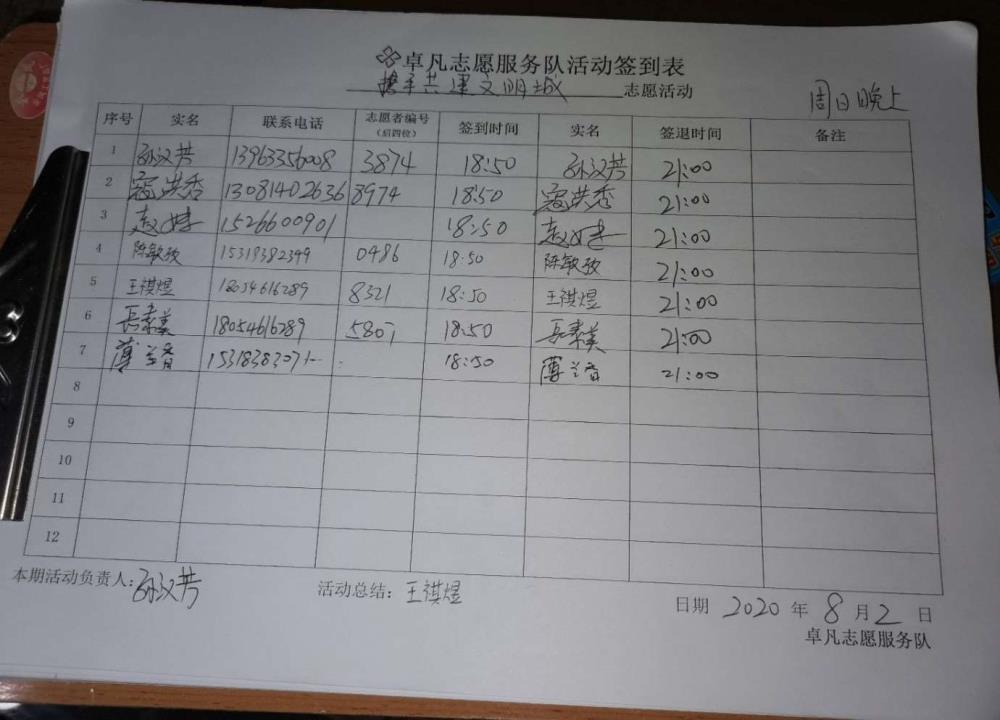 卓凡志愿服务队活动签到表
携手共建文明城 志愿活动 周日晚上
序号 实名 联系电话 志愿者编号（后四位） 签到时间 实名 签退时间 备注
1 孙汉芳 13963356008 3874 18:50 孙汉芳 21:00
2 寇洪秀 13081402636 8974 18:50 寇洪秀 21:00
3 1526600901 18:50 21:00
4 陈敏孜 15319382399 0486 18:50 陈敏孜 21:00
5 王祺煜 18054616289 8321 18:50 王祺煜 21:00
6 18054616289 5807 18:50 21:00
7 薄兰香 18:50 薄兰香 21:00
8
9
10
11
12
本期活动负责人：孙汉芳 活动总结：王祺煜 日期 2020 年 8 月 2 日
卓凡志愿服务队